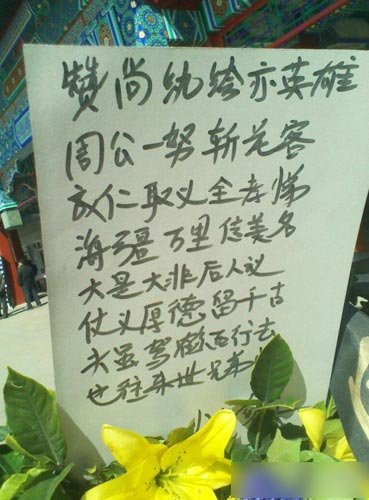 赞尚幼绘亦英雄
周公一努斩花客
成仁取义全孝悌
海疆万里美名
大是大非后人议
仗义厚德留千古
夫虽驾鹤西行去
也往来世兄弟